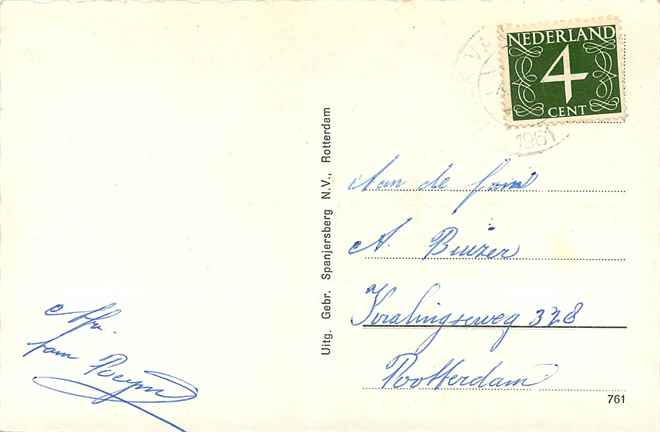 NEDERLAND
4
CENT
1961
Uitg. Gebr. Spanjersberg N.V., Rotterdam
Aan de fam
A. Buizer
Kralingseweg 328
Rotterdam
Afz.
fam
761